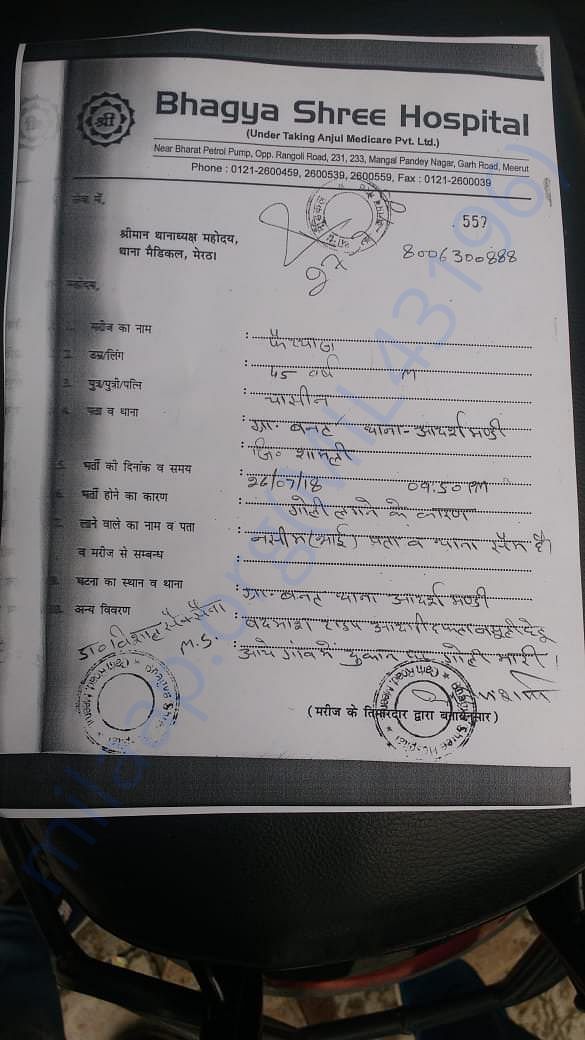 श्री
Bhagya Shree Hospital
(Under Taking Anjul Medicare Pvt. Ltd.)
Near Bharat Petrol Pump, Opp. Rangoli Road, 231, 233, Mangal Pandey Nagar, Garh Road, Meerut
Phone : 0121-2600459, 2600539, 2600559, Fax : 0121-2600039
सेवा में,
557
श्रीमान थानाध्यक्ष महोदय,
8006300888
थाना मैडिकल, मेरठ।
महोदय,
1. मरीज का नाम :
2. उम्र/लिंग : 45 वर्ष M
3. पुत्र/पुत्री/पत्नि : यासीन
4. पता व थाना : ग्रा- बनत थाना- आदर्श मण्डी
जि० शामली
5. भर्ती की दिनांक व समय : 26/07/18 09:50 PM
6. भर्ती होने का कारण : गोली लगने के कारण
7. लाने वाले का नाम व पता : नसीम (भाई) पता व थाना सैम है।
व मरीज से सम्बन्ध :
8. घटना का स्थान व थाना : ग्रा- बनत थाना आदर्श मण्डी
9. अन्य विवरण : बदमाश
आये गांव में दुकान पर गोली मारी।
डा० विशाल सक्सैना
M.S.
(मरीज के तिमारदार द्वारा बतायेनुसार)
milaap.org(MIL43196)